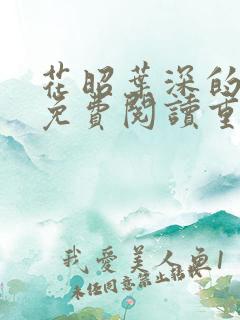 花昭葉深的
免費閱讀重
我愛美人魚1
未經同意禁止轉載